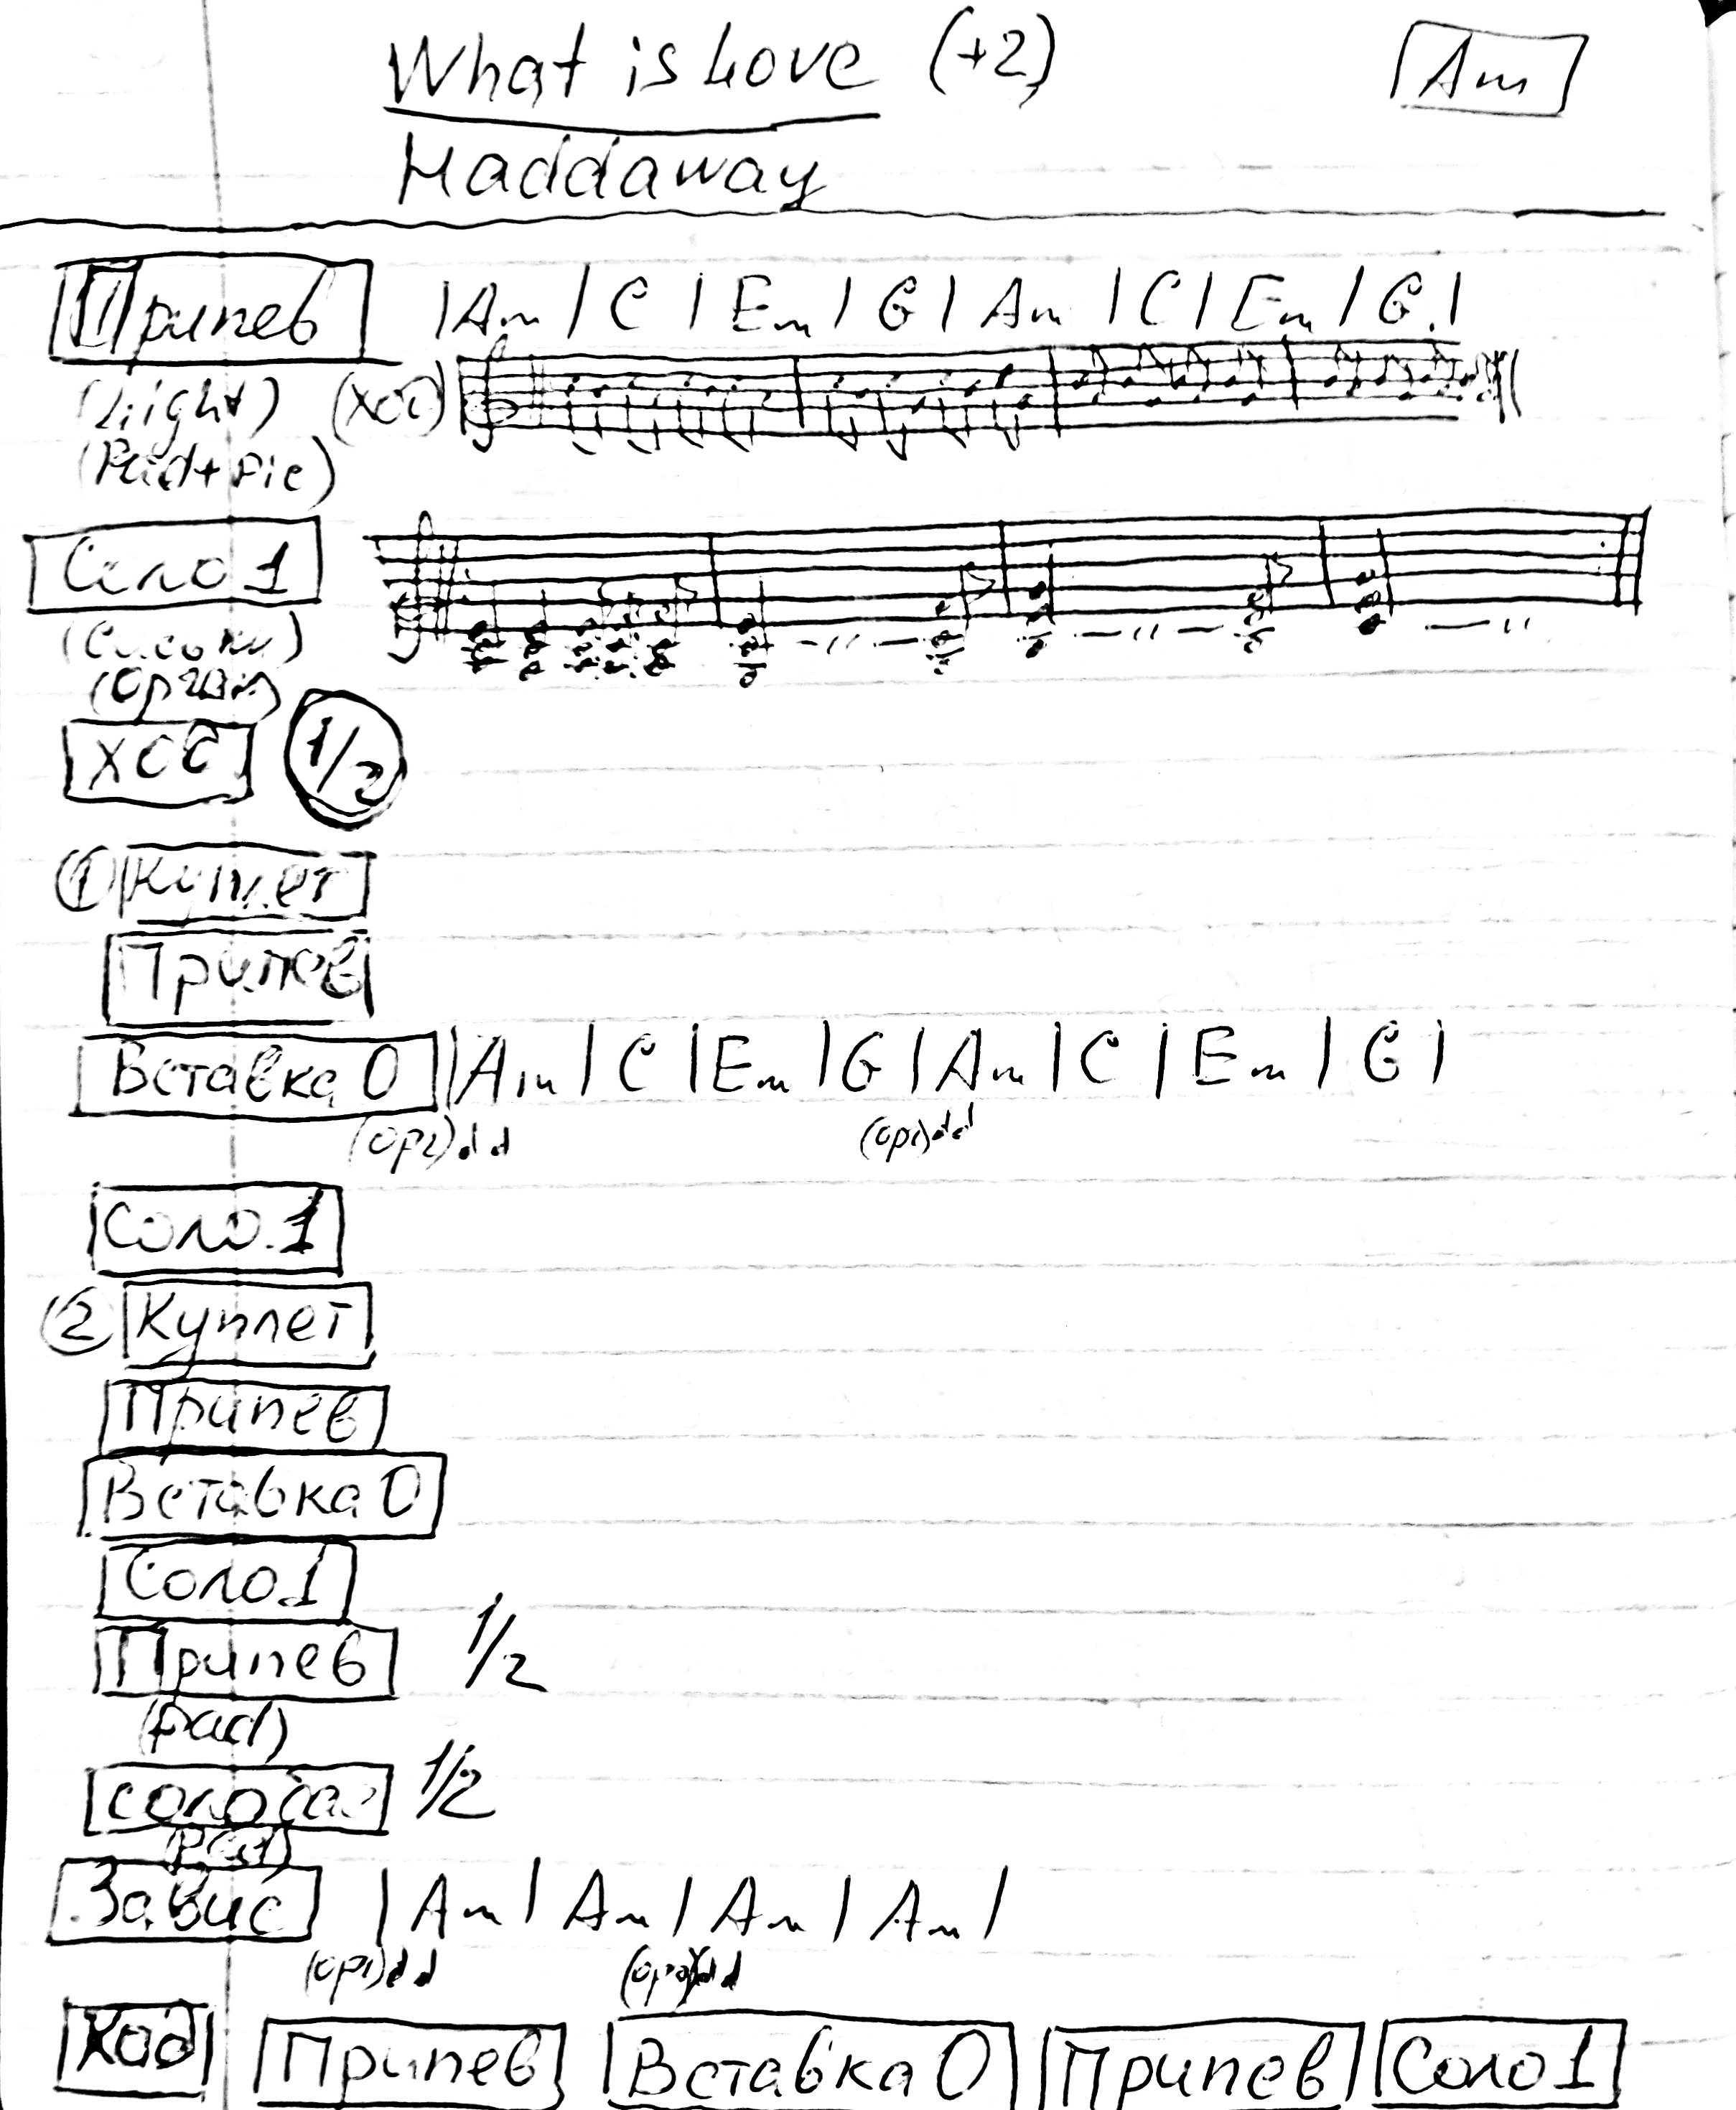 What is Love (+2) Am
Haddaway
Припев |Am | C | Em | G | Am | C | Em | G |
(Light)
(Pad+
Соло 1
(Орган)
1/2
① Куплет
Припев
Вставка 0 |Am | C | Em | G | Am | C | Em | G |
(орг) (орг)
Соло 1
② Куплет
Припев
Вставка 0
Соло 1
Припев 1/2
(pad)
соло 1/2
Завис | Am | Am | Am | Am |
(орг) (орг)
Припев Вставка 0 Припев Соло 1